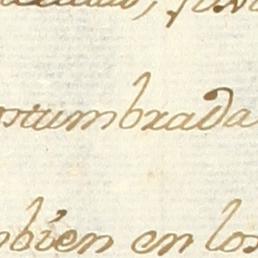 stumbrada
mbien en los